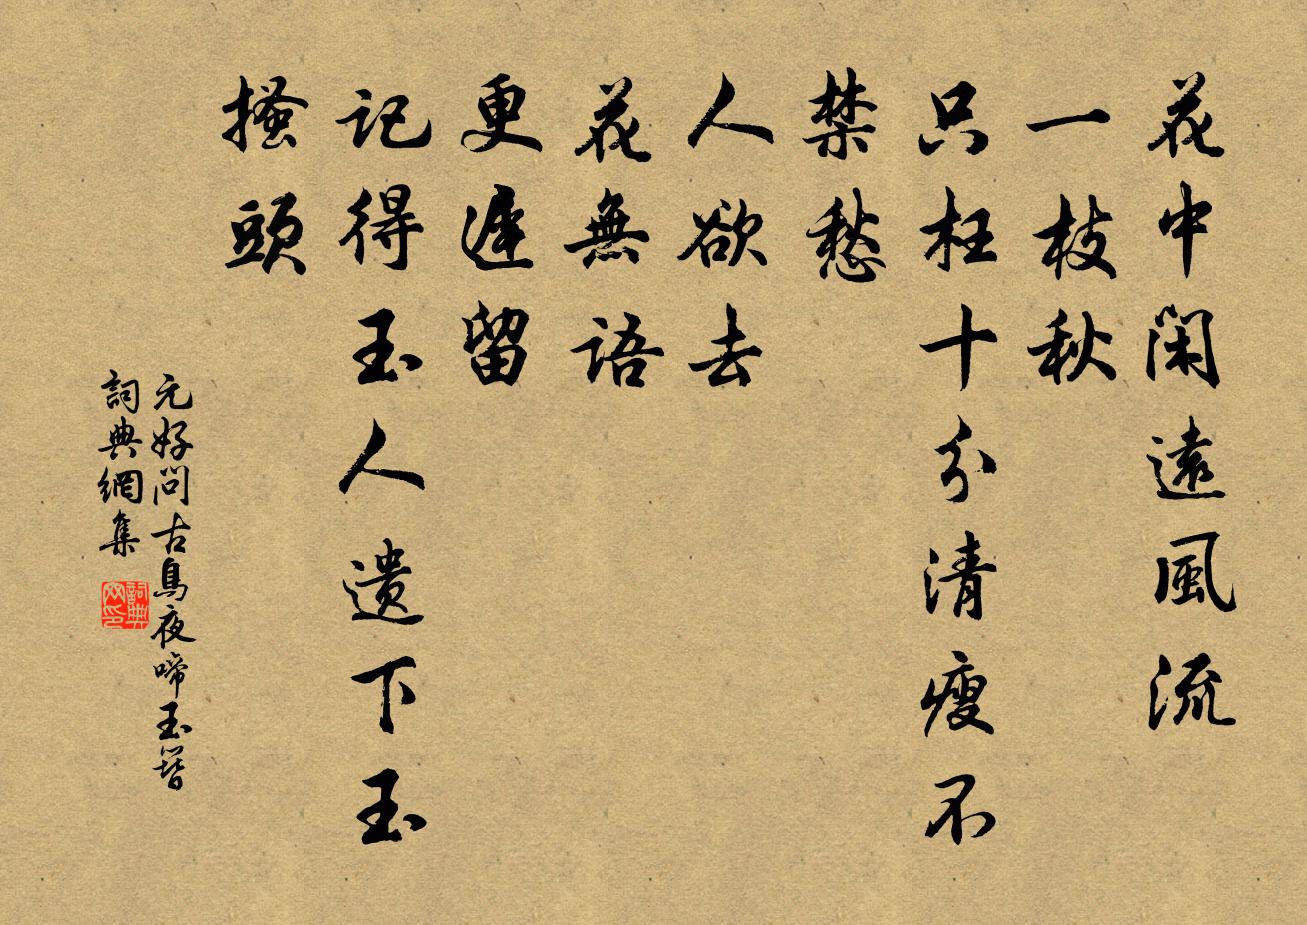 花中閑遠風流
一枝秋
只枉十分清瘦不
禁愁
人欲去
花無語
更遲留
記得玉人遺下玉
搔頭
元好問古烏夜啼玉簪
詞典網集
詞典网印